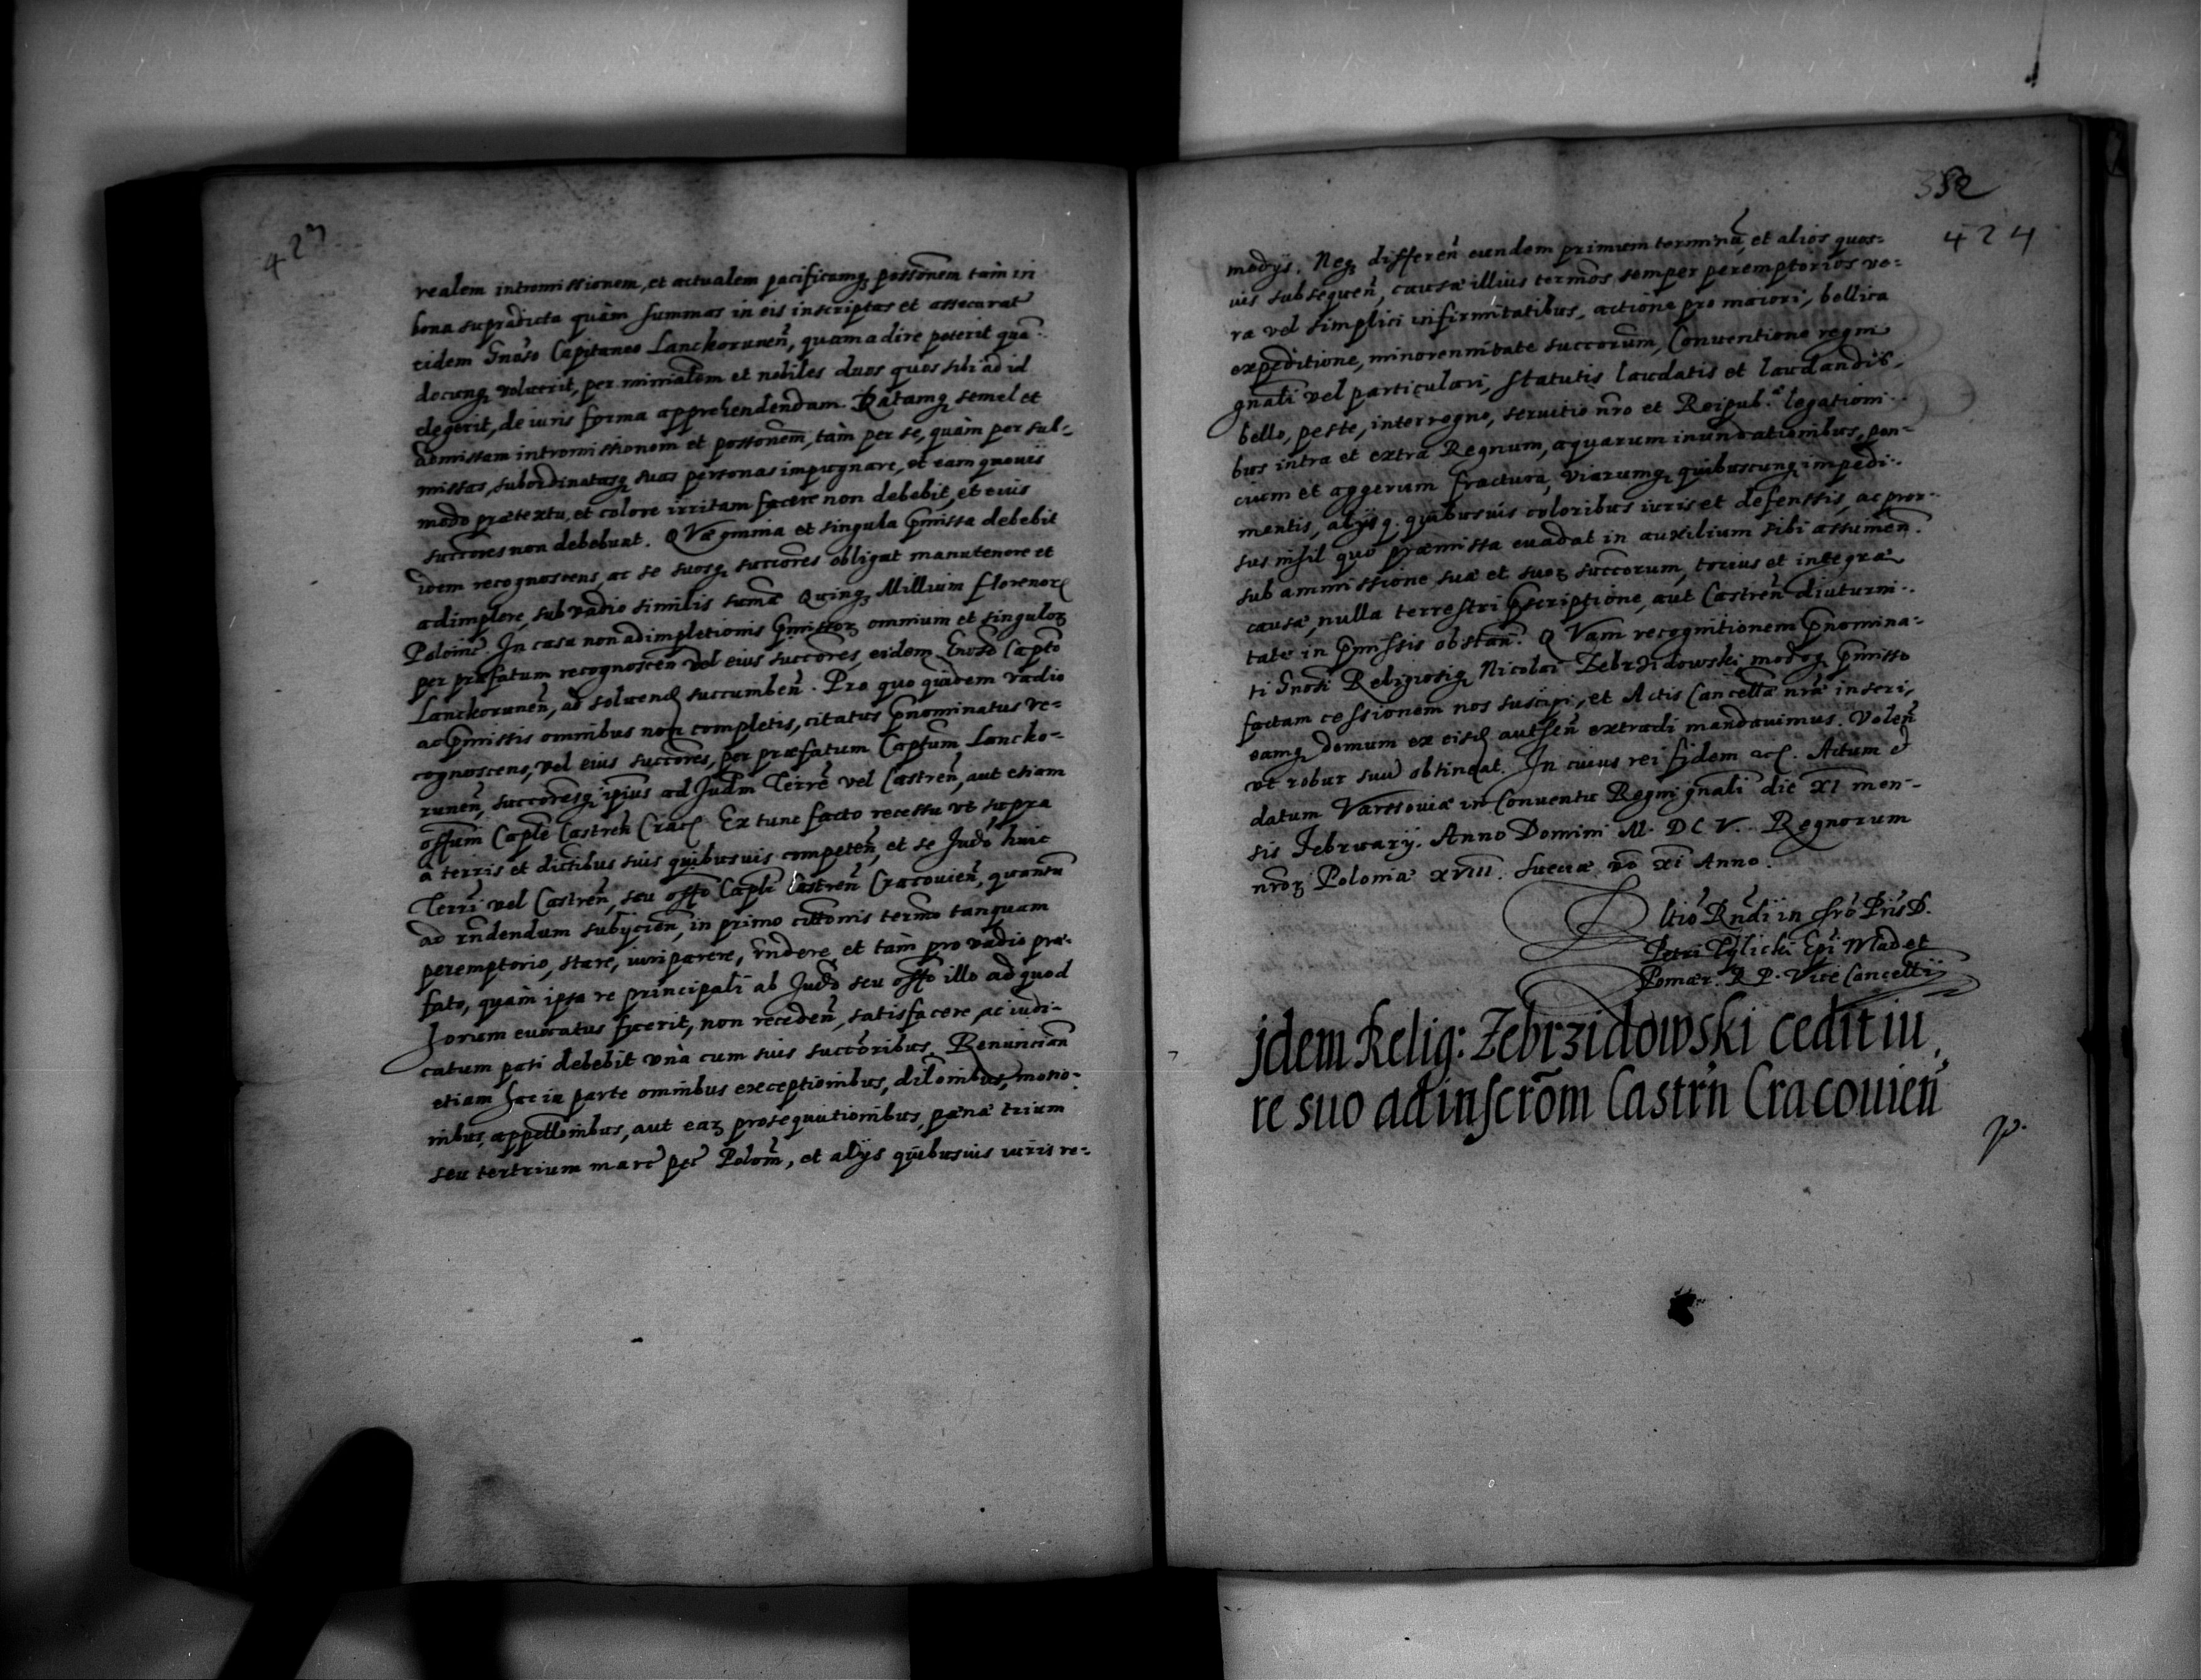 423
realem intromissionem, et actualem pacificamq possonem tam in
bona supradicta quàm summas in eis inscriptas et assecurat
eidem Gnoso Capitaneo Lanckorunen, quam adire poterit quan-
docunq voluerit, per minialem et nobiles duos quos sibi ad id
elegerit, de iuris forma apprehendendam. Ratamq semel et
admissam intromissionem et possonem, tàm per se, quàm per sub-
missas, subordinatasq suas personas impugnare, et eam quouis
modo prætextu, et colore irritam facere non debebit, et eius
succores non debebunt. QVæ omnia et singula pmissa debebit
idem recognoscens, ac se suosq succores obligat manutenere et
adimplere, sub vadio similis sumæ Quinq Millium florenor
Polonic. In casu non adimpletionis pmissor omnium et singulor
per præfatum recognoscen vel eius succores, eidem Gnoso Capto
Lanckorunen, ad soluend succumben. Pro quo quidem vadio
ac pmissis omnibus non completis, citatus pnominatus re-
cognoscens, vel eius succores, per præfatum Captum Lancko-
runen, succoresq ipius ad Judm Terre vel Castren, aut etiam
offum Caple Castren Crac. Ex tunc facto recessu vt supra
a terris et dictibus suis quibusuis competen, et se Judo huic
Terri vel Castren, seu offo Capli Castren Cracouien, quantu
ad rndendum subÿcien, in primo cittonis termo tanquam
peremptorio, stare, iuri parere, rndere, et tàm pro vadio præ-
fato, quàm ipsa re principali ab Judo seu offo illo ad quod
forum euocatus fuerit, non receden, satisfacere, ac iudi-
catum pati debebit vnà cum suis succoribus. Renuncian
etiam hac in parte omnibus exceptionibus, dilonibus, motio-
nibus, appellonibus, aut ear prosequutionibus, pænâ trium
seu ter trium marc pec Polon, et alÿs quibusuis iuris re-
352
424
medÿs. Neq differen eundem primum terminu, et alios quos-
uis subsequen, causæ illius termos semper peremptorios ve-
ra vel simplici infirmitatibus, actione pro maiori, bellica
expeditione, minorennitate succorum, Conuentione regni
gnali vel particulari, statutis laudatis et laudandis,
bello, peste, interregno, seruitio nro et Reipub. legationi-
bus intra et extra Regnum, aquarum inundationibus, pon-
cium et aggerum fractura, viarumq quibuscunq impedi-
mentis, alÿsq. quibusuis coloribus iuris et defenssis, ac pror-
sus nihil quo præmissa euadat in auxilium sibi assumen.
sub ammissione suæ et suor succorum, tocius et integræ
causæ, nulla terrestri pscriptione, aut Castren diuturni-
tate in pmissis obstan. QVam recognitionem pnomina-
ti Gnosi Religiosiq Nicolai Zebrzidowski, modoq pmisso
factam cessionem nos suscipi, et Actis Cancellæ nræ inseri,
eamq demum ex eisd authen extradi mandauimus. Volen
vt robur suu obtineat. In cuius rei fidem etc. Actum et
datum Varssouiæ in Conuentu Regni gnali die XI men-
sis Februarÿ. Anno Domini M. DC V. Regnorum
nror Poloniæ XVIII. Sueciæ vo XI Anno.
Rltio Rndi in Chro Pris D.
Petri Tylicki Epi Wlad et
Pomer. R P. Vice Cancellÿ
jdem Relig: Zebrzidowski cedit iu
re suo ad inscrom Castrn Cracouien